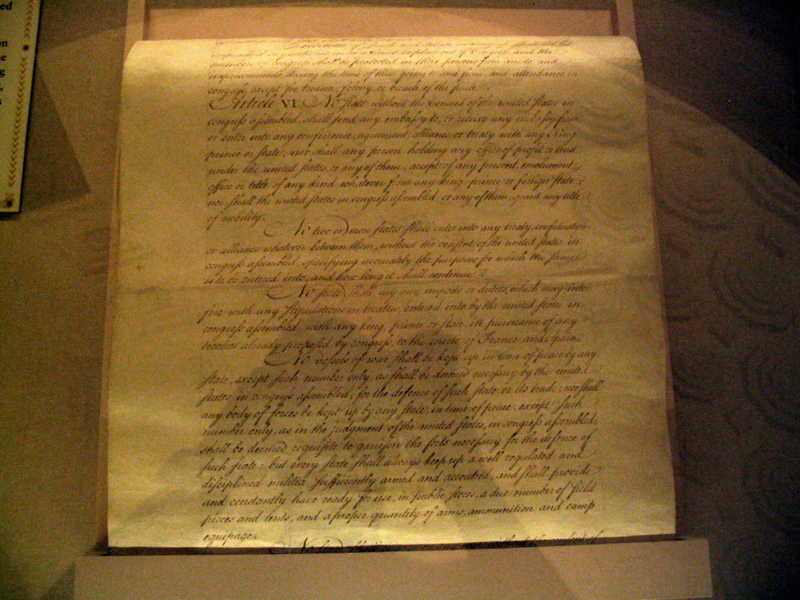 members of congress shall be protected in their persons from arrests and
imprisonments, during the time of their going to and from, and attendance on
congress, except for treason, felony, or breach of the peace.
Article VI. No state without the Consent of the united states in
congress assembled, shall send any embassy to, or receive any embassy from,
or enter into any conferrence, agreement, alliance or treaty with any King
prince or state; nor shall any person holding any office of profit or trust
under the united states, or any of them, accept of any present, emolument,
office or title of any kind whatever from any king, prince or foreign state;
nor shall the united states in congress assembled, or any of them, grant any title
of nobility.
No two or more states shall enter into any treaty, confederation
or alliance whatever between them, without the consent of the united states in
congress assembled, specifying accurately the purposes for which the same
is to be entered into, and how long it shall continue.
No state shall lay any imposts or duties, which may inter-
fere with any stipulations in treaties, entered into by the united states in
congress assembled, with any king, prince or state, in pursuance of any
treaties already proposed by congress, to the courts of France and Spain.
No vessels of war shall be kept up in time of peace by any
state, except such number only, as shall be deemed necessary by the united
states in congress assembled, for the defence of such state, or its trade; nor shall
any body of forces be kept up by any state, in time of peace, except such
number only, as in the judgment of the united states, in congress assembled,
shall be deemed requisite to garrison the forts necessary for the defence of
such state; but every state shall always keep up a well regulated and
disciplined militia, sufficiently armed and accoutred, and shall provide
and constantly have ready for use, in public stores, a due number of field
pieces and tents, and a proper quantity of arms, ammunition and camp
equipage.